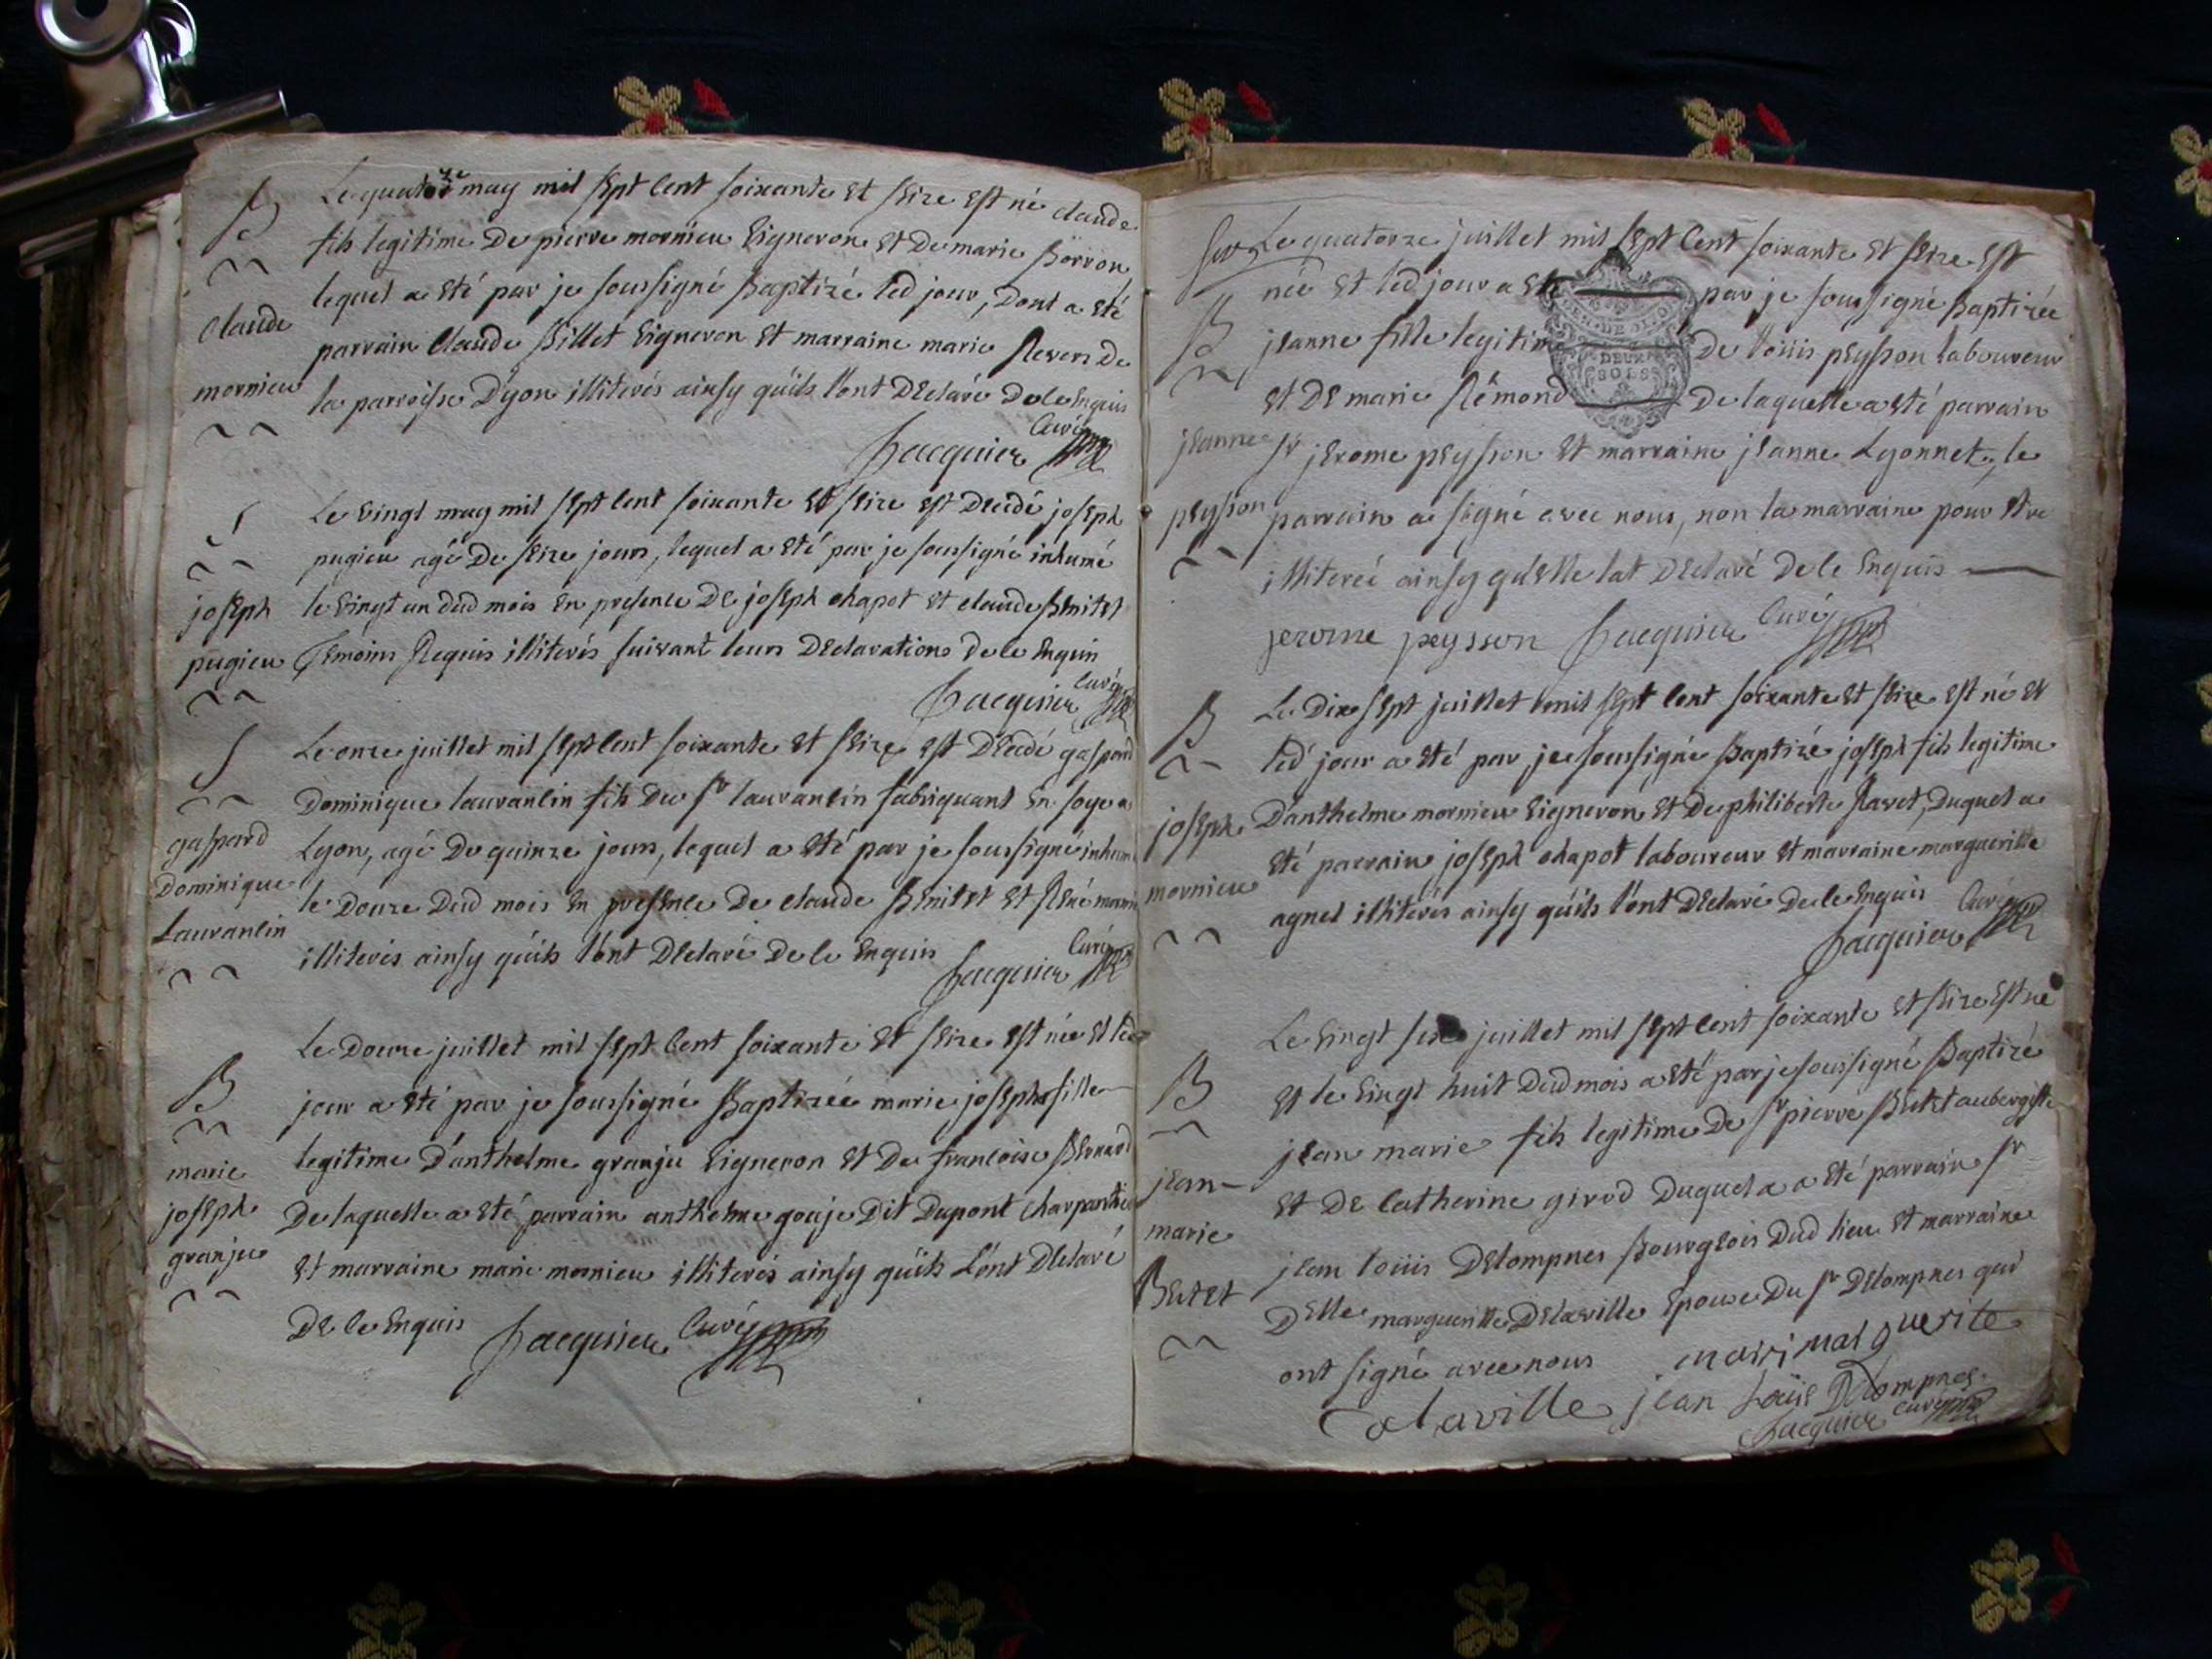 B
claude
mornieu
Le quatorze may mil sept cent soixante et seize est né claude
fils legitime De pierre mornieu vigneron et De marie Borron
lequel a eté par je soussigné Baptizé led jour, Dont a eté
parrain Claude Billet vigneron et marraine marie Reven de
la parroisse Dyon illiterés ainsy qu'ils l'ont Declaré De ce enquis
Jacquier Curé
S
joseph
pugieu
Le vingt may mil sept cent soixante et seize est Decedé joseph
pugieu agé De seize jours, lequel a eté par je soussigné inhumé
le vingt un dud mois en presence De joseph chapot et claude Benitet
Temoins Requis illiterés suivant leurs Declarations de ce enquis
Jacquier Curé
S
gaspard
Dominique
Lauranlin
Le onze juillet mil sept cent soixante et seize est Decedé gaspard
Dominique lauranlin fils Du Sr lauranlin fabriquant en soye a
Lyon, agé De quinze jours, lequel a eté par je soussigné inhumé
le Douze Dud mois en presence De claude Benitet et René
illiterés ainsy qu'ils l'ont Declaré De ce enquis
Jacquier Curé
B
marie
joseph
granju
Le Douze juillet mil sept cent soixante et seize est née et led
jour a eté par je soussigné Baptizée marie joseph fille
legitime D'anthelme granju vigneron et De francoise Bernard
De laquelle a eté parrain anthelme gouje Dit Dupont charpantier
et marraine marie mornieu illiterés ainsy qu'ils L'ont Declaré
De ce enquis Jacquier Curé
B
jeanne
peysson
Le quatorze juillet mil sept cent soixante et seize est
née et led jour a eté par je soussigné Baptizée
GEN. DE DIJON
DEUX
SOLS
jeanne fille legitime De loüis peysson laboureur
et De marie Rémond De laquelle a eté parrain
Sr jerome peysson et marraine jeanne Lyonnet, le
parrain a signé avec nous, non la marraine pour etre
illiterée ainsy qu'elle lat Declaré De ce enquis
jerome peysson Jacquier Curé
B
joseph
mornieu
Le Dix sept juillet mil sept cent soixante et seize est né et
led jour a eté par je soussigné Baptizé joseph fils legitime
D'anthelme mornieu vigneron et De philiberte Ravet, Duquel a
eté parrain joseph chapot laboureur et marraine margueritte
agnel illiterés ainsy qu'ils l'ont Declaré De ce enquis
Jacquier Curé
B
jean
marie
Butet
Le vingt juillet mil sept cent soixante et seize est né
et le vingt huit Dud mois a eté par je soussigné Baptizé
jean marie fils legitime De Sr pierre Butet aubergiste
et De Catherine girod Duquel a a eté parrain Sr
jean loüis Delompnes Bourgeois Dud lieu et marraine
Delle margueritte Delaville epouse Du Sr Delompnes qui
ont signé avec nous marguerite
delaville jean Loüis Delompnes
Jacquier Curé